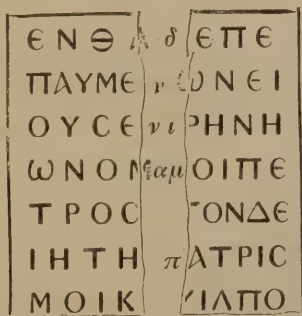 ΕΝΘΑ δ ΕΠΕ
ΠΑΥΜΕ ν ΩΝΕΙ
ΟΥϹΕ νι ΡΗΝΗ
ωΝΟΜ αμ ΟΙΠΕ
ΤΡΟϹ ΤΟΝΔΕ
ΙΗΤΗ π ΑΤΡΙϹ
ΜΟΙΚ ΙΛΠΟ